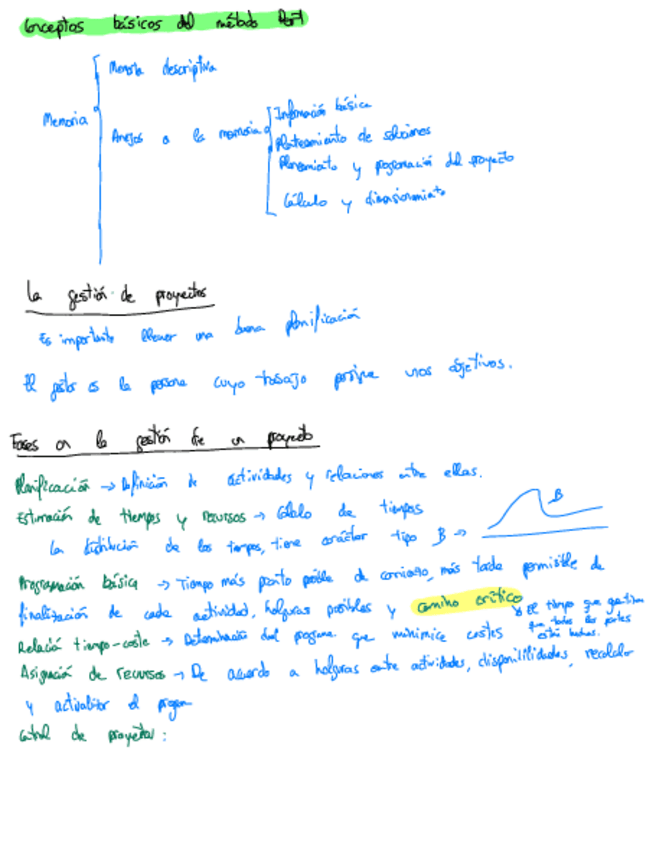 Conceptos básicos del método Pert
Memoria
Memoria descriptiva
Anejos a la memoria
Información básica
Planteamiento de soluciones
Planeamiento y programación del proyecto
Cálculo y dimensionamiento
La gestión de proyectos
Es importante llevar una buena planificación
El gestor es la persona cuyo trabajo persigue unos objetivos.
Fases en la gestión de un proyecto
Planificación → Definición de actividades y relaciones entre ellas.
Estimación de tiempos y recursos → Cálculo de tiempos
La distribución de los tiempos, tiene carácter tipo B →
B
Programación básica → Tiempo más pronto posible de comienzo, más tarde permisible de
finalización de cada actividad, holguras posibles y camino crítico
El tiempo que
que todas las partes
están hechas.
Relació tiempo-coste → Determinación del programa que minimice costes
Asignación de recursos → De acuerdo a holguras entre actividades, recalcular
y el
Control de proyectos: